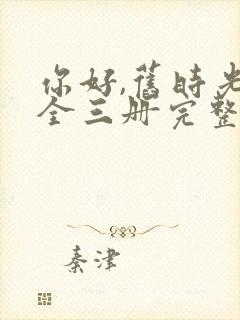 你好,旧时光
全三册完整
秦津